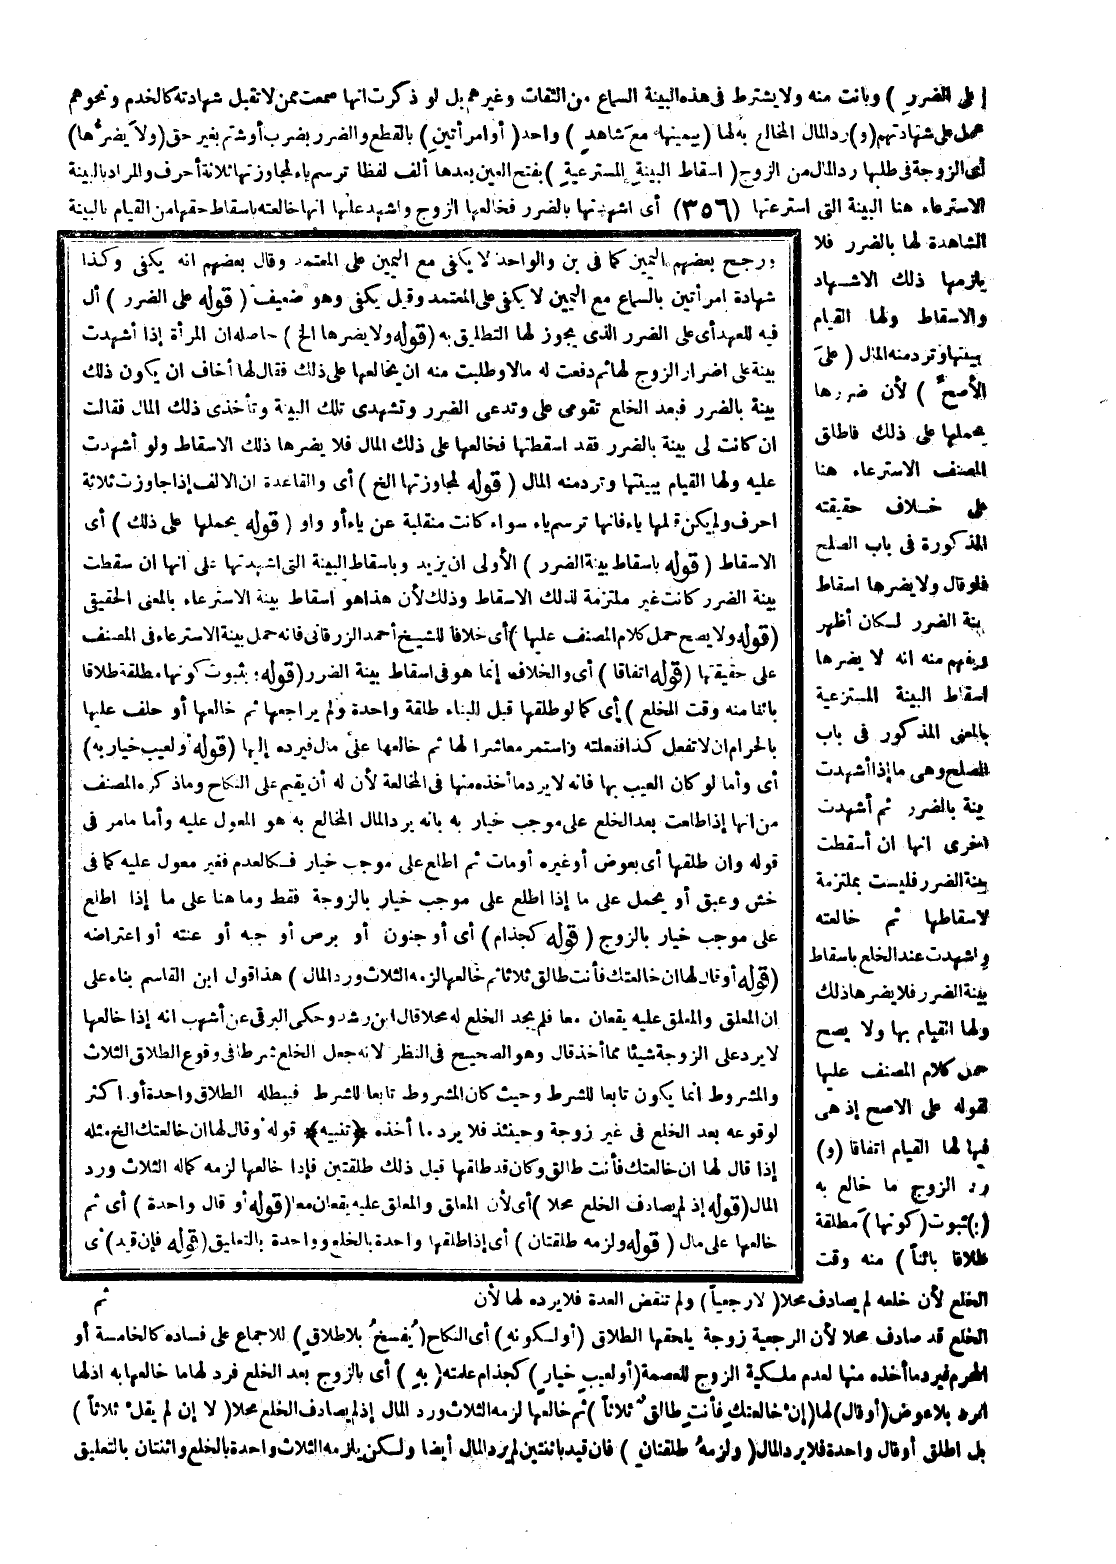 (على الضرر) وبانت منه ولا يشترط فى هذه البينة السماع من الثقات وغيرهم بل لو ذكرت انها سمعت ممن لا تقبل شهادته كالخدم ونحوهم
عمل على شهادتهم (و) رد المال المخالع به لها (بيمينها مع شاهد) واحد (أو امرأتين) بالقطع والضرر بضرب أو شتم بغير حق (ولا يضرها)
أى الزوجة فى طلبها رد المال من الزوج (اسقاط البينة المسترعية) بفتح العين بعدها ألف لفظا ترسم ياء لمجاوزتها ثلاثة أحرف والمراد بالبينة
الاسترعاء هنا البينة التى استرعتها (٣٥٦) أى اشهدتها بالضرر فخالعها الزوج واشهد عليها انها خالعته باسقاط حقها من القيام بالبينة
الشاهدة لها بالضرر فلا
يلزمها ذلك الاشهاد
والاسقاط ولها القيام
ببينتها وترد منه المال (على
الأصح) لأن ضررها
يحملها على ذلك فاطلق
المصنف الاسترعاء هنا
على خلاف حقيقته
المذكورة فى باب الصلح
فلو قال ولا يضرها اسقاط
بينة الضرر لكان أظهر
ويفهم منه انه لا يضرها
اسقاط البينة المسترعية
بالمعنى المذكور فى باب
الصلح وهى ما إذا أشهدت
بينة بالضرر ثم أشهدت
اخرى انها ان أسقطت
بينة الضرر فليست بملتزمة
لاسقاطها ثم خالعته
واشهدت عند الخلع باسقاط
بينة الضرر فلا يضرها ذلك
ولها القيام بها ولا يصح
حمل كلام المصنف عليها
لقوله على الاصح إذ هى
فيها لها القيام اتفاقا (و)
رد الزوج ما خالع به
(بـ) ثبوت (كونها) مطلقة
طلاقا بائنا) منه وقت
ورجح بعضهم اليمين كما فى بن والواحد لا يكفى مع اليمين على المعتمد وقال بعضهم انه يكفى وكذا
شهادة امرأتين بالسماع مع اليمين لا يكفى على المعتمد وقيل يكفى وهو ضعيف (قوله على الضرر) أل
فيه للعهد أى على الضرر الذى يجوز لها التطليق به (قوله ولا يضرها الخ) حاصله ان المرأة إذا أشهدت
بينة على اضرار الزوج لها ثم دفعت له مالا وطلبت منه ان يخالعها على ذلك فقال لها أخاف ان يكون ذلك
بينة بالضرر فبعد الخلع تقومى على وتدعى الضرر وتشهدى تلك البينة وتأخذى ذلك المال فقالت
ان كانت لى بينة بالضرر فقد اسقطتها فخالعها على ذلك المال فلا يضرها ذلك الاسقاط ولو أشهدت
عليه ولها القيام ببينتها وترد منه المال (قوله لمجاوزتها الخ) أى والقاعدة ان الالف إذا جاوزت ثلاثة
احرف ولم يكن قبلها ياء فانها ترسم ياء سواء كانت منقلبة عن ياء أو واو (قوله يحملها على ذلك) أى
الاسقاط (قوله باسقاط بينة الضرر) الأولى ان يزيد وباسقاط البينة التى اشهدتها على انها ان سقطت
بينة الضرر كانت غير ملتزمة لذلك الاسقاط وذلك لأن هذا هو اسقاط بينة الاسترعاء بالمعنى الحقيقى
(قوله ولا يصح حمل كلام المصنف عليها) أى خلافا للشيخ أحمد الزرقانى فانه حمل بينة الاسترعاء فى المصنف
على حقيقتها (قوله اتفاقا) أى والخلاف إنما هو فى اسقاط بينة الضرر (قوله بثبوت كونها مطلقة طلاقا
بائنا منه وقت الخلع) أى كما لو طلقها قبل البناء طلقة واحدة ولم يراجعها ثم خالعها أو حلف عليها
بالحرام ان لا تفعل كذا ففعلته واستمر معاشرا لها ثم خالعها على مال فيرده إليها (قوله أو لعيب خيار به)
أى وأما لو كان العيب بها فانه لا يرد ما أخذه منها فى المخالعة لأن له أن يقيم على النكاح وما ذكره المصنف
من انها إذا طلعت بعد الخلع على موجب خيار به بانه يرد المال المخالع به هو المعول عليه وأما مامر فى
قوله وان طلقها أى بعوض أو غيره أو مات ثم اطلع على موجب خيار فكالعدم فغير معول عليه كما فى
خش وعبق أو يحمل على ما إذا اطلع على موجب خيار بالزوجة فقط وما هنا على ما إذا اطلع
على موجب خيار بالزوج (قوله كجذام) أى أو جنون أو برص أو جبه أو عنته أو اعتراضه
(قوله أو قال لها ان خالعتك فأنت طالق ثلاثا ثم خالعها لزمه الثلاث ورد المال) هذا قول ابن القاسم بناء على
ان المعلق والمعلق عليه يقعان معا فلم يجد الخلع له محلا قال ابن رشد وحكى البرقى عن أشهب انه إذا خالعها
لا يرد على الزوجة شيئا مما أخذ قال وهو الصحيح فى النظر لانه جعل الخلع شرطا فى وقوع الطلاق الثلاث
والمشروط انما يكون تابعا للشرط وحيث كان المشروط تابعا للشرط فيبطله الطلاق واحدة أو اكثر
لوقوعه بعد الخلع فى غير زوجة وحينئذ فلا يرد ما أخذه ﴿تنبيه﴾ قوله وقال لها ان خالعتك الخ مثله
إذا قال لها ان خالعتك فأنت طالق وكان قد طلقها قبل ذلك طلقتين فإذا خالعها لزمه كماله الثلاث ورد
المال (قوله إذ لم يصادف الخلع محلا) أى لأن المعلق والمعلق عليه يقعان معا (قوله أو قال واحدة) أى ثم
خالعها على مال (قوله ولزمه طلقتان) أى إذا طلقها واحدة بالخلع وواحدة بالتعليق (قوله فإن قيد) أى
الخلع لأن خلعه لم يصادف محلا (لا رجعيا) ولم تنقض العدة فلا يرده لها لأن ثم
الخلع قد صادف محلا لأن الرجعية زوجة يلحقها الطلاق (أو لكونه) أى النكاح (يفسخ بلا طلاق) للاجماع على فساده كالخامسة أو
المحرم فيرد ما أخذه منها لعدم ملكية الزوج للعصمة (أو لعيب خيار) كجذام علمته (به) أى بالزوج بعد الخلع فرد لها ما خالعها به اذ لها
الرد بلا عوض (أو قال) لها (إن خالعتك فأنت طالق ثلاثا) ثم خالعها لزمه الثلاث ورد المال إذ لم يصادف الخلع محلا (لا إن لم يقل ثلاثا)
بل اطلق أو قال واحدة فلا يرد المال (ولزمه طلقتان) فان قيد باثنتين لم يرد المال أيضا ولكن يلزمه الثلاث واحدة بالخلع واثنتان بالتعليق